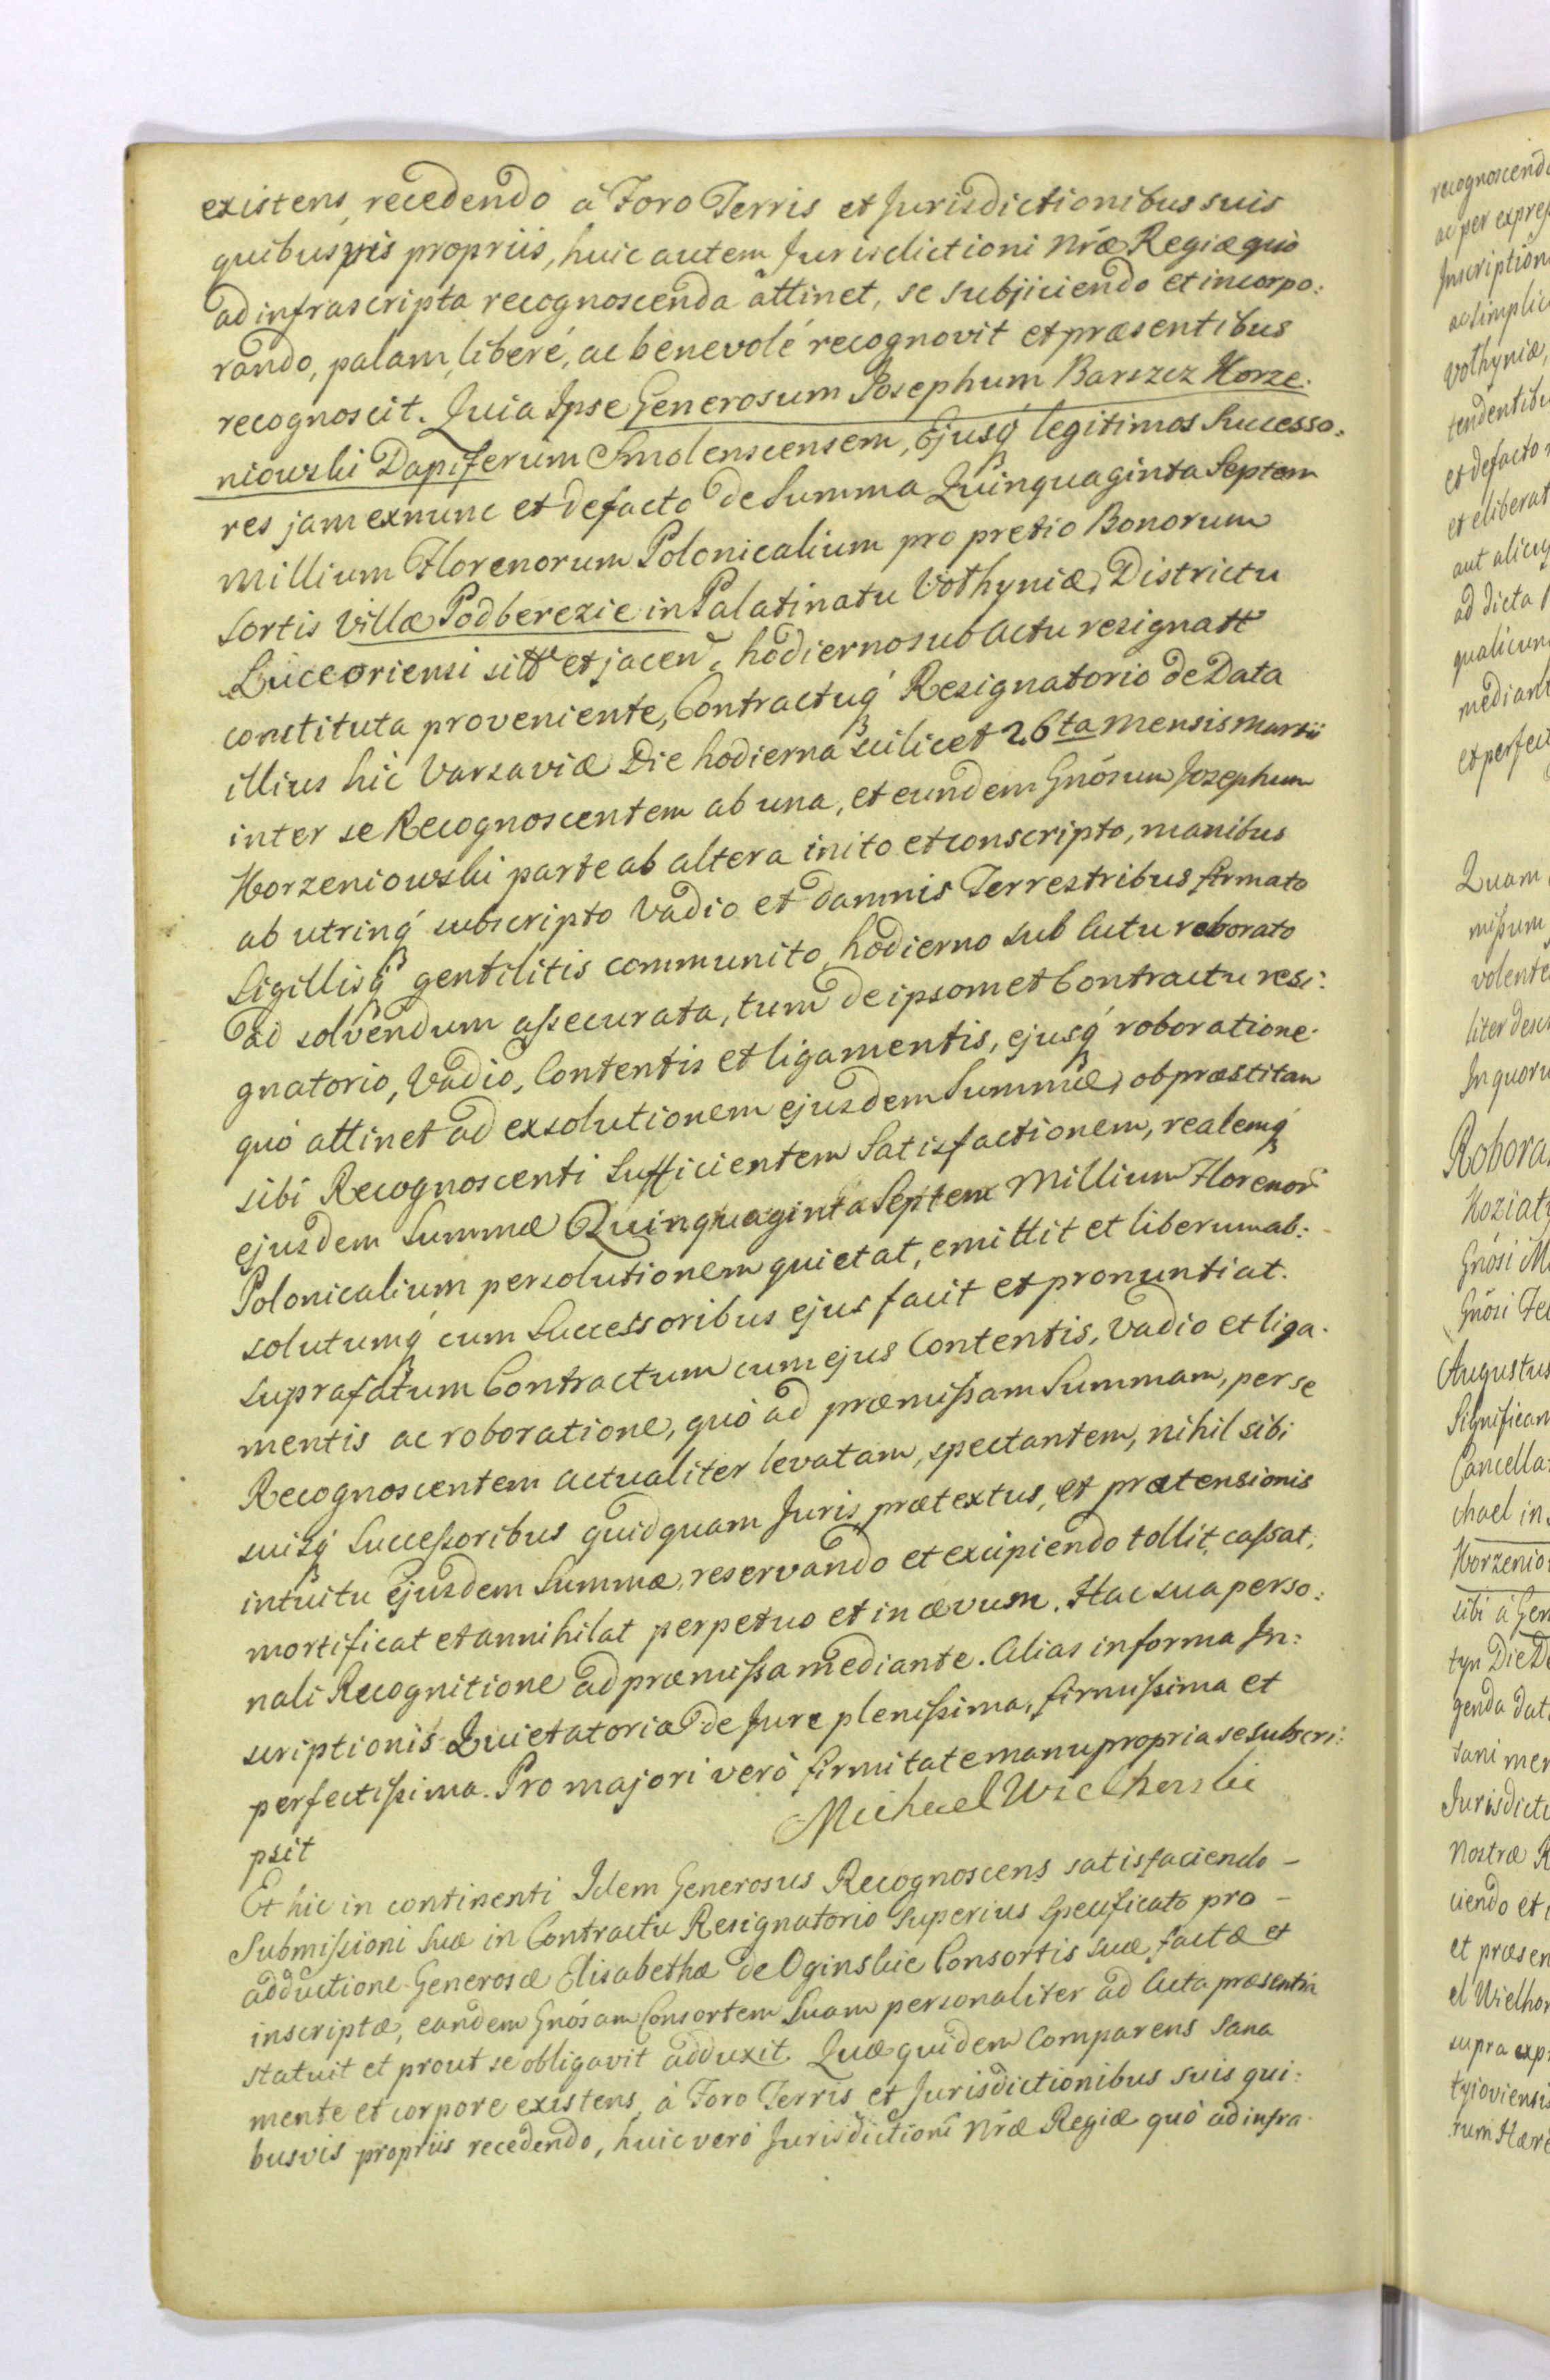 existens, recedendo á Foro Terris et Jurisdictionibus suis
quibusvis propriis, huic autem Jurisdictioni Nræ Regiæ quò
ad infrascripta recognoscenda attinet, se subjiciendo et incorpo:
rando, palam, liberé, ac benevolé recognovit et præsentibus
recognoscit. Quia Ipse Generosum Josephum Barszcz Korze:
niowski Dapiferum Smolenscensem, Ejusq́ legitimos Successo:
res jam exnunc et defacto de Summa Quinquaginta Septem
Millium Florenorum Polonicalium pro pretio Bonorum
Sortis Villæ Podberezie in Palatinatu Volhyniæ, Districtu
Luceoriensi sitt et jacen, hodierno sub Actu resignatt
constituta proveniente, Contractuq́ Resignatorio de Data
illius hic Varsaviæ Die hodierna scilicet 26ta Mensis Martii
inter se Recognoscentem ab una, et eundem Gnósum Josephum
Korzeniowski parte ab altera inito et conscripto, manibus
ab utrinq́ subscripto Vadio et damnis Terrestribus firmato
Sigillisq́ gentilitis communito, hodierno sub Actu roborato
ad solvendum assecurata, tum de ipsomet Contractu resi:
gnatorio, Vadio, Contentis et ligamentis, ejusq́ roboratione
quò attinet ad exsolutionem ejusdem Summæ, ob præstitam
sibi Recognoscenti Sufficientem Satisfactionem, realemq́
ejusdem Summæ Quinquaginta Septem Millium Florenor
Polonicalium persolutionem quietat, emittit et liberum ab:
solutumq́ cum Successoribus ejus facit et pronuntiat.
suprafatum Contractum cum ejus Contentis, Vadio et liga:
mentis ac roboratione, quò ad præmissam Summam, per se
Recognoscentem actualiter levatam, spectantem, nihil sibi
suisq́ Successoribus quidquam Juris, prætextus, et prætensionis
intuitu ejusdem Summæ, reservando et excipiendo tollit, cassat,
mortificat et annihilat perpetuo et in ævum. Hac sua perso:
nali Recognitione ad præmissa mediante. Alias in forma In:
scriptionis Quietatoriæ de Jure plenissima, firmissima et
perfectissima. Pro majori verò firmitate manu propria se subscri:
psit
Michael Wielhorski
Et hic in continenti Idem Generosus Recognoscens satisfaciendo –
Submissioni Suæ in Contractu Resignatorio Superius specificato pro –
adductione Generosæ Elisabethæ de Oginskie Consortis Suæ factæ et
inscriptæ, eandem Gnósam Consortem Suam personaliter ad Acta præsentia
statuit et prout se obligavit adduxit. Quæ quidem Comparens sana
mente et corpore existens, á Foro Terris et Jurisdictionibus suis qui:
busvis propriis recedendo, huic verò Jurisdictioni Nræ Regiæ quò ad infra
recognoscend
ac per expres
Inscription
ac simplic
Volhyniæ,
tendentibu
et defacto
et eliberat
aut alicuj
ad dicta
qualicun
mediant
et perfec
Quam
missum
volente
liter desc
In quoru
Robora
Koziat
Gnósi M
Gnósi Fe
Augustus
Significam
Cancella
chael in
Korzenio
sibi á Gen
tyn Die D
genda dat
sani men
Jurisdicti
Nostræ R
ciendo et
et præsen
el Wielhor
supra exp
tyioviensi
rum Hære